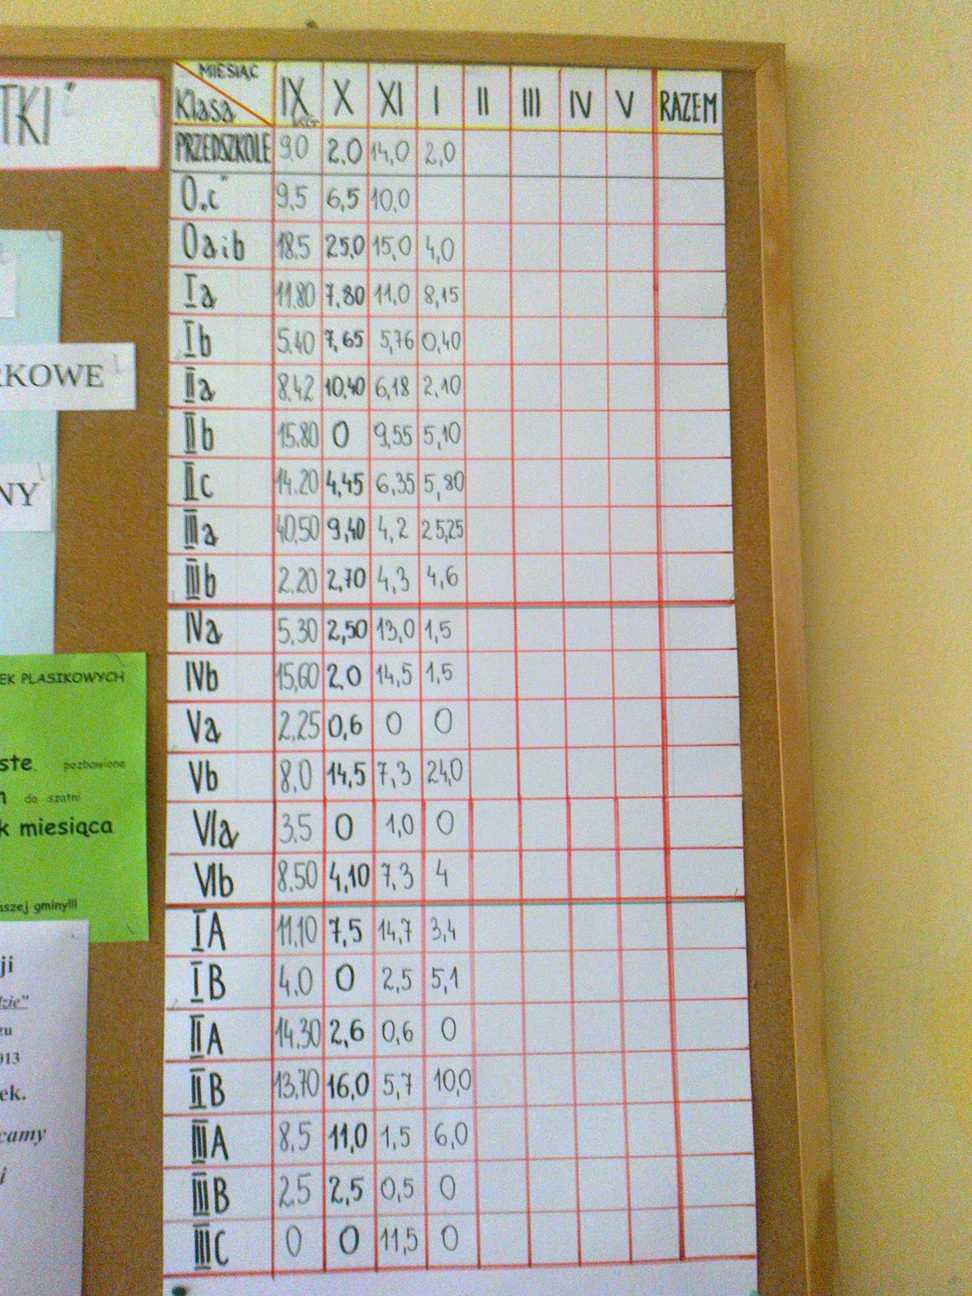 TKI"
RKOWE
NY
EK PLASIKOWYCH
ste pozbawione
do szatni
k miesiąca
aszej gminy!!!
ji
dzie"
zu
013
ek.
camy
i
MIESIĄC
Klasa IX X XI I II III IV V RAZEM
KG
PRZEDSZKOLE 9.0 2,0 14,0 2,0
O„c" 9,5 6,5 10,0
O a i b 18.5 25,0 15,0 4,0
Ia 11,80 7,80 11,0 8,15
Ib 5.40 7,65 5,76 0,40
IIa 8,42 10,40 6,18 2,10
IIb 15.80 0 9,55 5,10
IIc 14.20 4,45 6,35 5,80
IIIa 40,50 9,40 4,2 25,25
IIIb 2.20 2,70 4,3 4,6
IVa 5,30 2,50 13,0 1,5
IVb 15,60 2,0 14,5 1,5
Va 2,25 0,6 0 0
Vb 8,0 14,5 7,3 24,0
VIa 3,5 0 1,0 0
VIb 8,50 4,10 7,3 4
IA 11,10 7,5 14,7 3,4
IB 4,0 0 2,5 5,1
IIA 14,30 2,6 0,6 0
IIB 13,70 16,0 5,7 10,0
IIIA 8,5 11,0 1,5 6,0
IIIB 2,5 2,5 0,5 0
IIIC 0 0 11,5 0